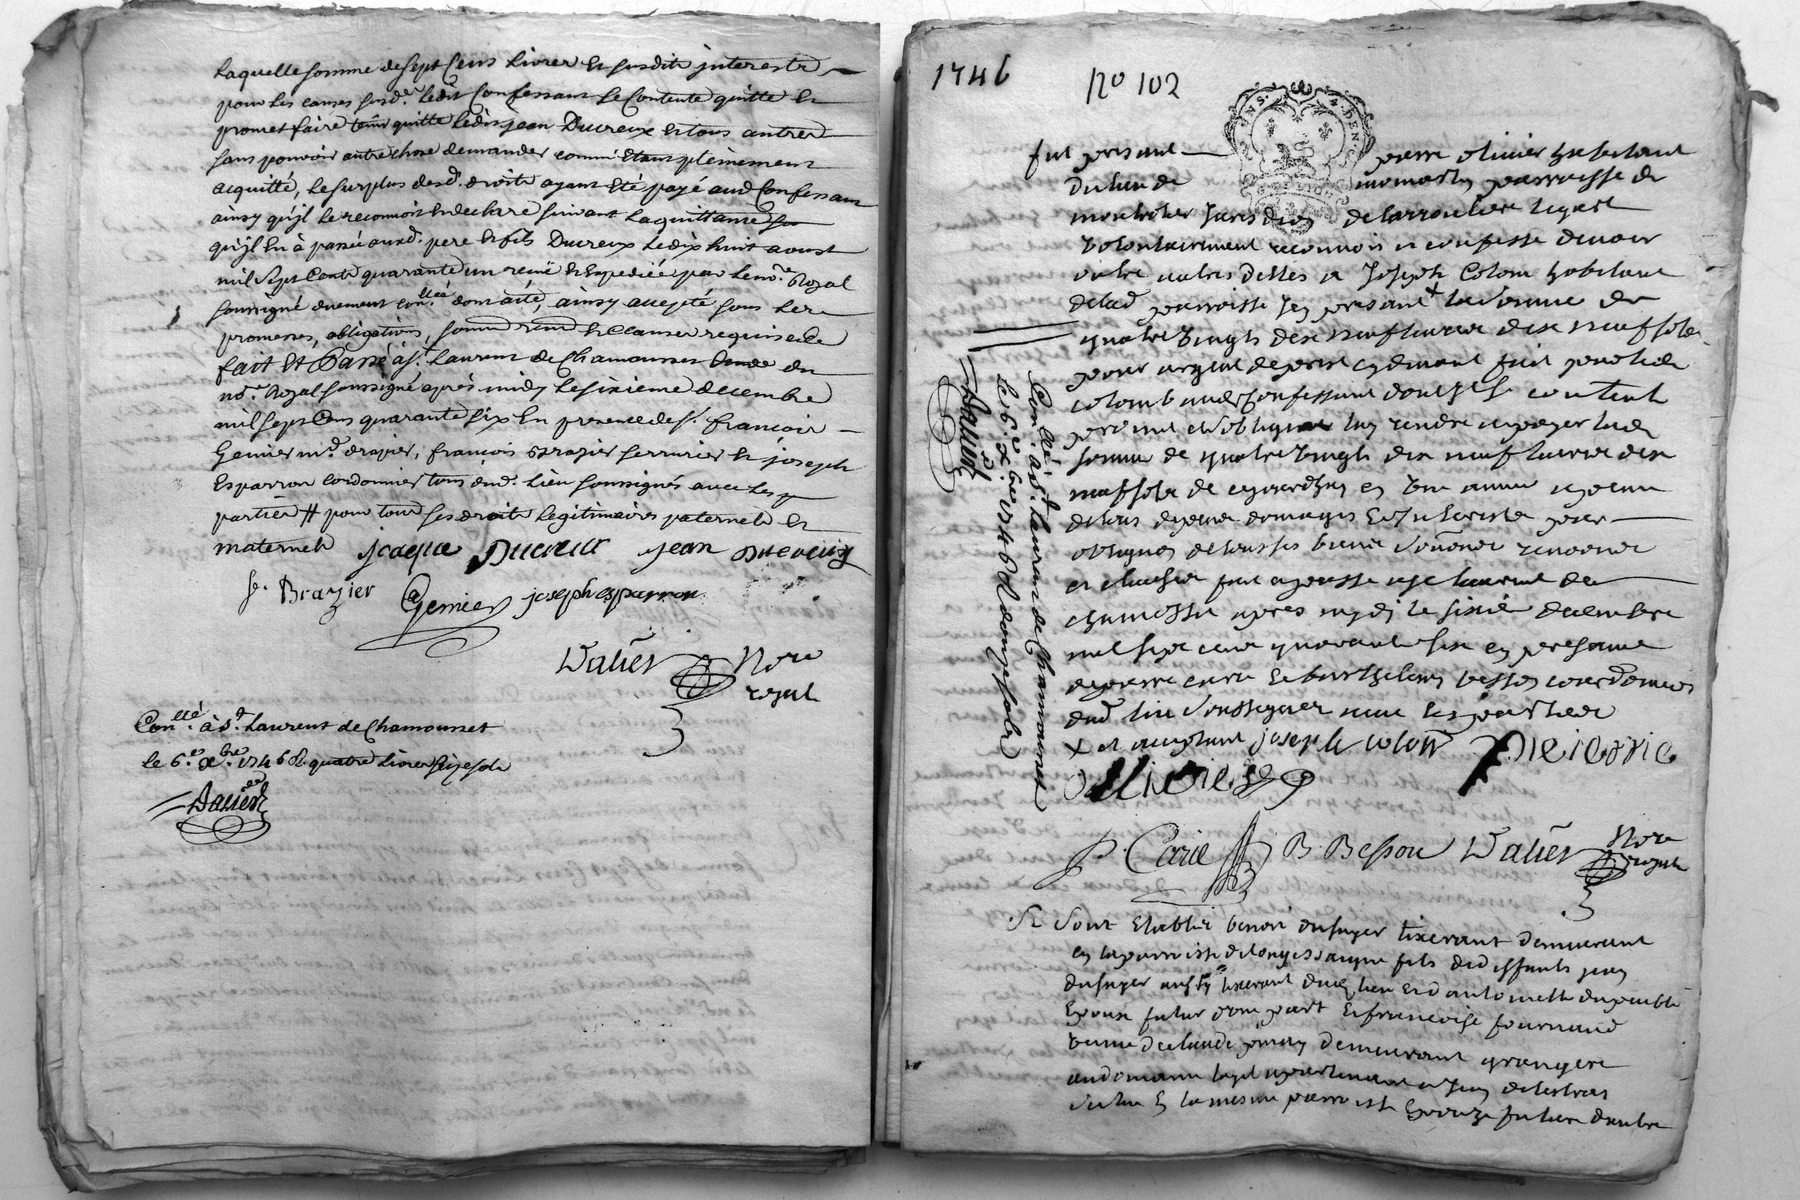 Laquelle somme de sept Cens Livres et susdits jnterests
pour les causes susd.es ledit Confessant se Contente quitte et
promet faire tenir quitte ledit jean Ducreux et tous autres
sans pouvoir autre chose demander comm' etant pleinement
acquitté, le surplus desd. droits ayant eté payé aud Confessant
ainsy qu'jl le reconnoit et declare suivant la quittance
qu'jl en à passée ausd. pere et fils Ducreux le dix huit aoust
mil sept Cents quarante un reçue et Expediée par le no.re Royal
soussigné duement con.llée domaité, ainsy accepté sous les
promesses, obligations, soum.ons renon.ons et clauses requises
fait et Passé à S.t Laurent de Chamousset Etude du
no.re Royal soussigné après midy le sixieme decembre
mil sept Cens quarante six En presence de s.r francois
Gernier m.d drapier, francois Brazier serrurier et joseph
Esparron cordonnier tous dud. lieu soussignés avec les
parties # pour tous ses droits legitimaires paternels et
maternels jcaque Ducreux jean Ducreux
fr. Brazier Gernier joseph esparron
Valier No.re
royal
Con.llé à S.t Laurent de Chamousset
le 6.e x.bre 1746 R. quatre Livres seize sols
Davier
1746
No 102
GEN. DE LION
fut present pierre olivier habitant
du lieu de parroisse de
montrotier Jurisdion de larroulier lequel
volontairement reconnoit et confesse devoir
outre autres dettes a Joseph Colom habitant
de lad parroisse Jcy present x la somme de
quatre vingts dix neuf livres dix neuf sols
pour argent de prest cy devant fait par led
colomb aud confessant dont jl se contente
promet et s'oblige luy rendre et payer lad
somme de quatre vingts dix neuf livres dix
neuf sols de cejourdhuy en une année a peine
de tous depens domages et Jnterests par
obligaon de tous ses biens soumons renonons
et clauses fait et passé a st laurent de
chamousset apres mydi le sixie decembre
mil sept cens quarante six en presance
de pierre carre et barthelemy besson cordoniers
dud lieu soussignes avec les parties
x et acceptant joseph colom pieierre
ollivier
P. Carre B. Besson Valier No.re
royal
Con.llé à S.t Laurent de Chamousset
le 6.e x.bre 1746 R. douze sols
Davier
Se sont Etablis benoit dusuyer tixerant demeurant
en la parroisse de longessaigne fils de deffunts jean
dusuyer aussy tixerant dud lieu et d'antoinette dupeublé
Epoux futur d'une part Et francoise fournand
veuve de claude pinay demeurant grangere
au domaine appartenant a
Sieur En la mesme parroisse Epouze future d'autre